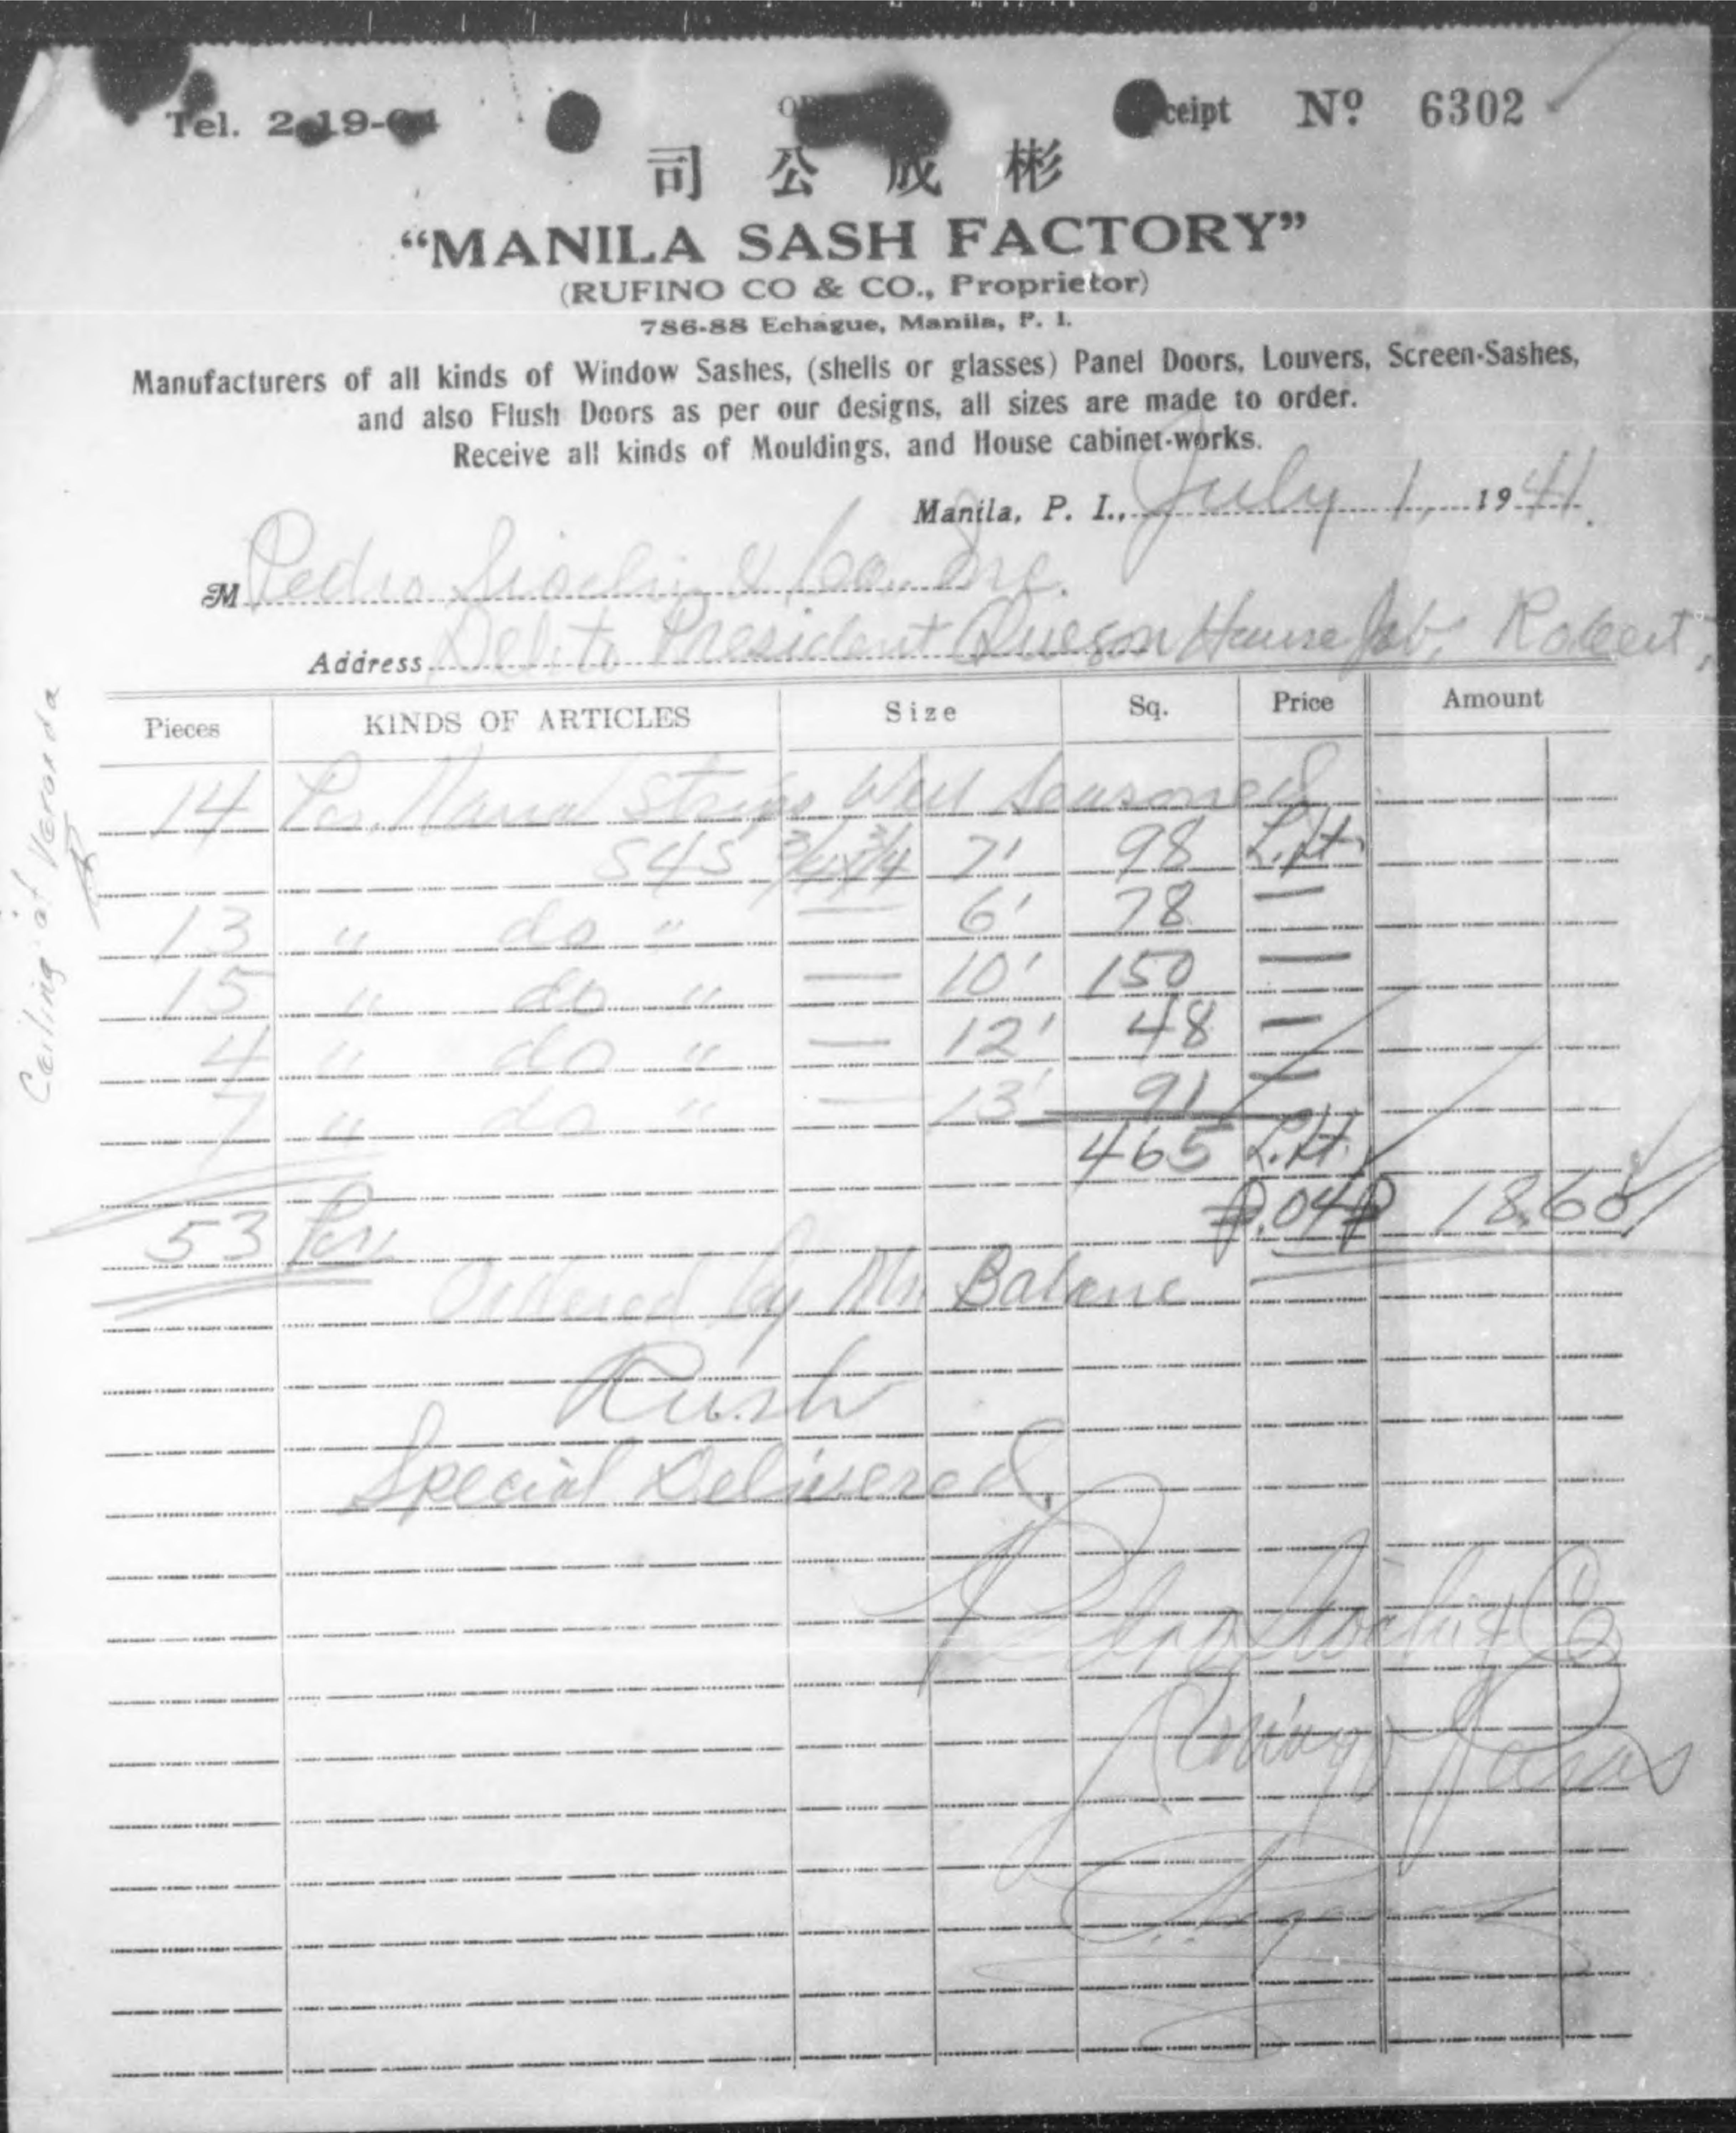 Tel. 2-19-
ceipt Nº 6302
司公成彬
“MANILA SASH FACTORY”
(RUFINO CO & CO., Proprietor)
786-88 Echague, Manila, P. I.
Manufacturers of all kinds of Window Sashes, (shells or glasses) Panel Doors, Louvers, Screen-Sashes,
and also Flush Doors as per our designs, all sizes are made to order.
Receive all kinds of Mouldings, and House cabinet-works.
Manila, P. I., July 1, 1941.
M Pedro Siochi & Co. Inc.
Address Del. to President Quezon House Job, Robert,
Pieces KINDS OF ARTICLES Size Sq. Price Amount
14 Pcs. Narra Strips Well Seasoned
S4S 3/4x3/4 7' 98 L.ft.
13 " do " — 6' 78 —
15 " do " — 10' 150 —
4 " do " — 12' 48 —
7 " do " — 13' 91 —
465 L.ft.
53 Pcs. ₱.04 ₱ 18.60
Ordered by Mr. Balane
Rush
Special Delivered.
Ceiling of Veranda